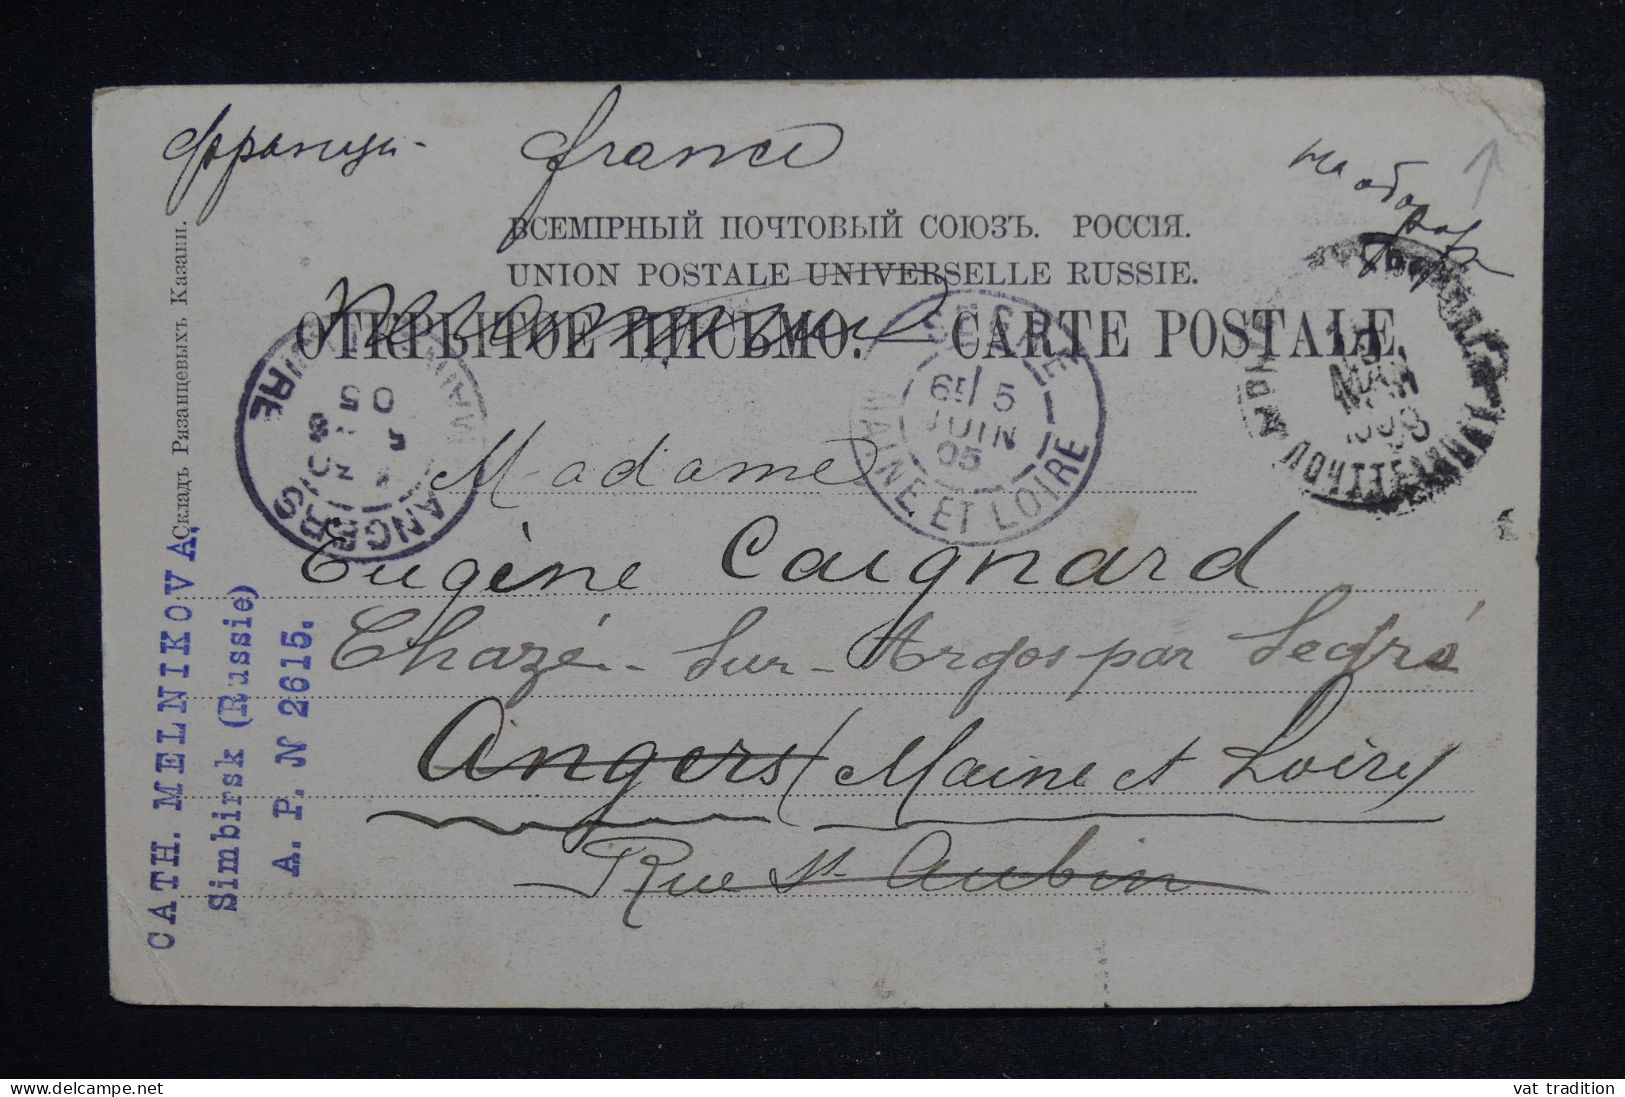 франція -
france
на оборотѣ
ВСЕМІРНЫЙ ПОЧТОВЫЙ СОЮЗЪ. РОССІЯ.
UNION POSTALE UNIVERSELLE RUSSIE.
ОТКРЫТОЕ ПИСЬМО. CARTE POSTALE.
SEGRÉ
6E 5
JUIN
05
MAINE ET LOIRE
ANGERS
MAINE
LOIRE
05
МАЯ
Madame
Eugène Caignard
Chazé-sur-Argos par Segré
Angers (Maine et Loire)
Rue St Aubin
Складъ Рязанцевыхъ Казани.
CATH. MELNIKOVA.
Simbirsk (Russie)
A. P. N 2615.
vat tradition
www.delcampe.net